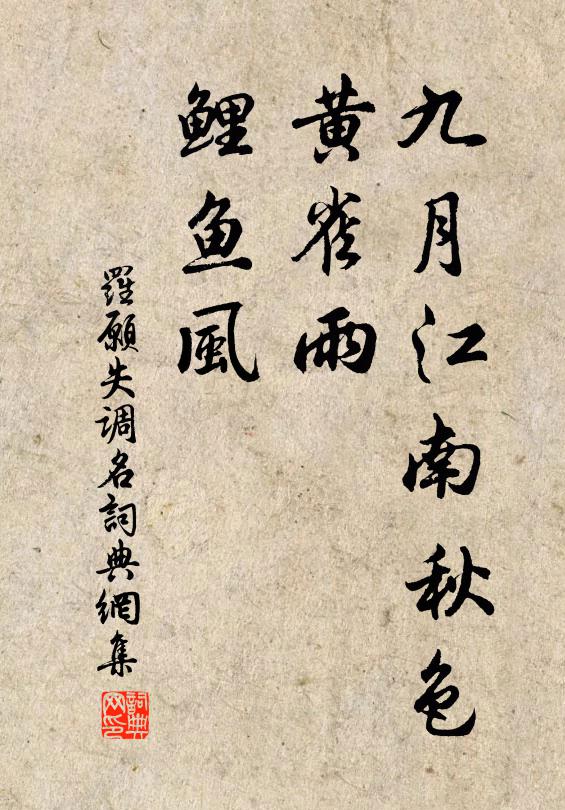 九月江南秋色
黄雀雨
鲤鱼風
羅願失调名詞典網集
詞典网印